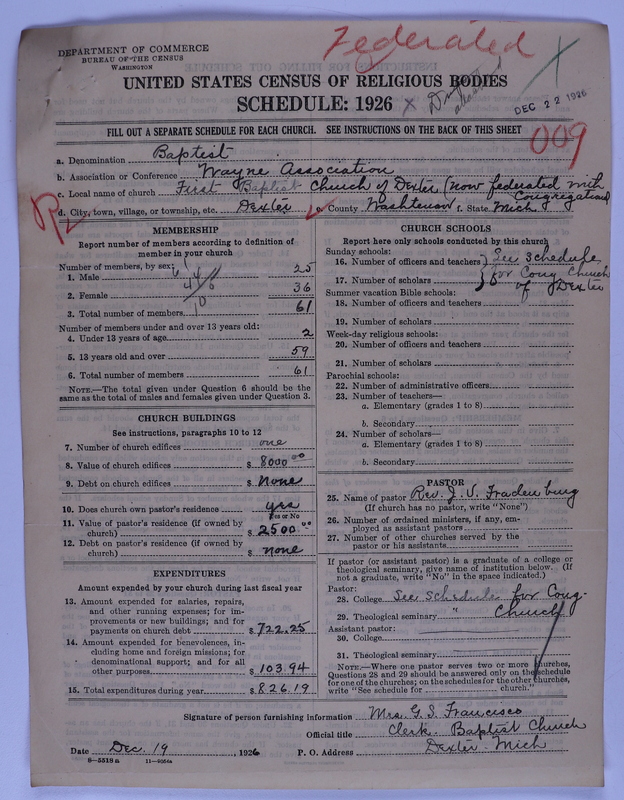 Federated
DEPARTMENT OF COMMERCE
BUREAU OF THE CENSUS
WASHINGTON
UNITED STATES CENSUS OF RELIGIOUS BODIES
SCHEDULE: 1926 x
DEC 22 1926
FILL OUT A SEPARATE SCHEDULE FOR EACH CHURCH. SEE INSTRUCTIONS ON THE BACK OF THIS SHEET
009
a. Denomination Baptist
b. Association or Conference Wayne Association
c. Local name of church First Baptist Church of Dexter (now federated with Congregational)
d. City, town, village, or township, etc. Dexter e. County Washtenaw f. State Mich
MEMBERSHIP
Report number of members according to definition of
member in your church
Number of members, by sex:
1. Male 25
2. Female 36
3. Total number of members 61
Number of members under and over 13 years old:
4. Under 13 years of age 2
5. 13 years old and over 59
6. Total number of members 61
NOTE.—The total given under Question 6 should be the
same as the total of males and females given under Question 3.
CHURCH BUILDINGS
See instructions, paragraphs 10 to 12
7. Number of church edifices one
8. Value of church edifices $ 8000 00
9. Debt on church edifices $ None
10. Does church own pastor's residence? yes
Yes or No
11. Value of pastor's residence (if owned by
church) $ 2500 00
12. Debt on pastor's residence (if owned by
church) $ none
EXPENDITURES
Amount expended by your church during last fiscal year
13. Amount expended for salaries, repairs,
and other running expenses; for im-
provements or new buildings; and for
payments on church debt $ 722.25
14. Amount expended for benevolences, in-
cluding home and foreign missions; for
denominational support; and for all
other purposes $ 103.94
15. Total expenditures during year $ 826.19
CHURCH SCHOOLS
Report here only schools conducted by this church
Sunday schools:
16. Number of officers and teachers See Schedule
17. Number of scholars for Cong Church
of Dexter
Summer vacation Bible schools:
18. Number of officers and teachers
19. Number of scholars
Week-day religious schools:
20. Number of officers and teachers
21. Number of scholars
Parochial schools:
22. Number of administrative officers
23. Number of teachers—
a. Elementary (grades 1 to 8)
b. Secondary
24. Number of scholars—
a. Elementary (grades 1 to 8)
b. Secondary
PASTOR
25. Name of pastor Rev. J. V. Fradenburg
(If church has no pastor, write "None")
26. Number of ordained ministers, if any, em-
ployed as assistant pastors
27. Number of other churches served by the
pastor or his assistants
If pastor (or assistant pastor) is a graduate of a college or
theological seminary, give name of institution below. (If
not a graduate, write "No" in the space indicated.)
Pastor:
28. College See Schedule for Cong.
29. Theological seminary " Church
Assistant pastor:
30. College
31. Theological seminary
NOTE.—Where one pastor serves two or more churches,
Questions 28 and 29 should be answered only on the schedule
for one of the churches; on the schedules for the other churches,
write "See schedule for church."
Signature of person furnishing information Mrs. G. S. Francisco
Official title Clerk Baptist Church
Date Dec. 19, 1926 P. O. Address Dexter Mich
8—5518 a 11—9054a